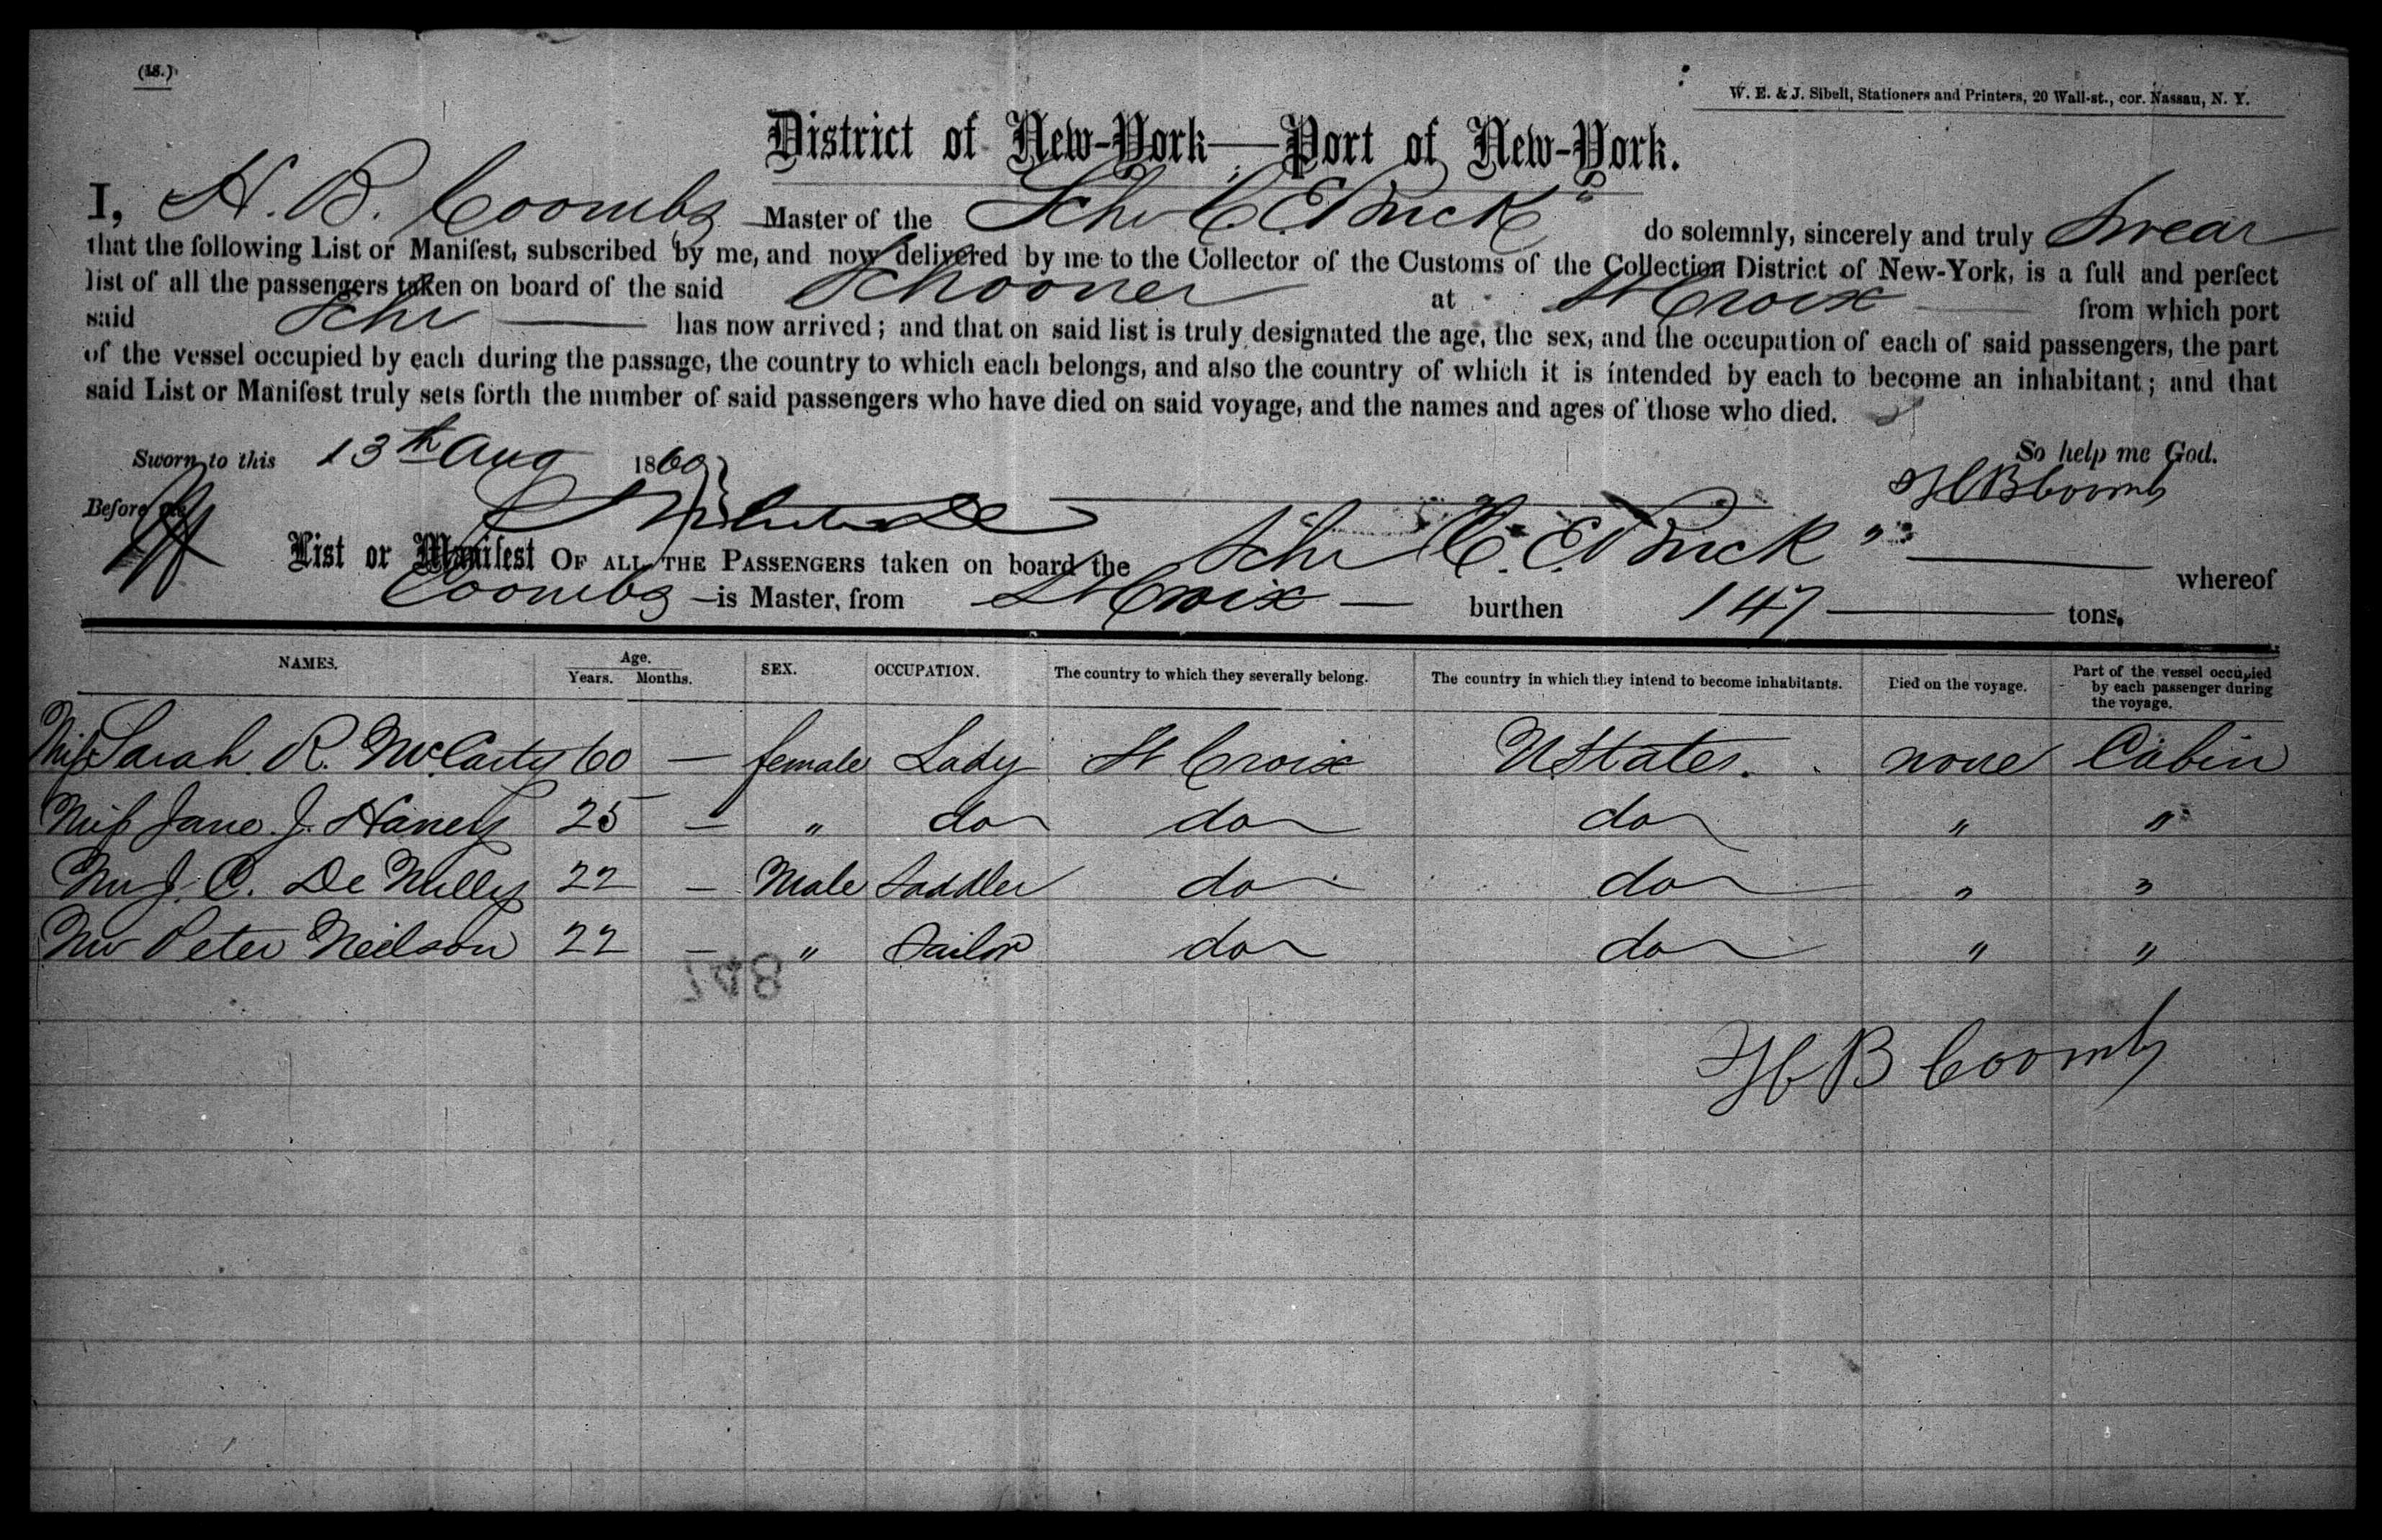 (18.)
W. E. & J. Sibell, Stationers and Printers, 20 Wall-st., cor. Nassau, N. Y.
District of New-York—Port of New-York.
I, H. B. Coombs Master of the Schr C. E. Buck" do solemnly, sincerely and truly Swear
that the following List or Manifest, subscribed by me, and now delivered by me to the Collector of the Customs of the Collection District of New-York, is a full and perfect
list of all the passengers taken on board of the said Schooner at St Croix from which port
said Schr has now arrived; and that on said list is truly designated the age, the sex, and the occupation of each of said passengers, the part
of the vessel occupied by each during the passage, the country to which each belongs, and also the country of which it is intended by each to become an inhabitant; and that
said List or Manifest truly sets forth the number of said passengers who have died on said voyage, and the names and ages of those who died.
Sworn to this 13th Aug 1860 So help me God.
Before me H B Coombs
List or Manifest OF ALL THE PASSENGERS taken on board the Schr C. E. Buck" whereof
Coombs is Master, from St Croix burthen 147 tons.
NAMES. Age. Years. Months. SEX. OCCUPATION. The country to which they severally belong. The country in which they intend to become inhabitants. Died on the voyage. Part of the vessel occupied by each passenger during the voyage.
Miss Sarah R. McCarty 60 — female Lady St Croix U States. none Cabin
Miss Jane J. Haney 25 — " do do do " "
Mr J. C. De Nully 22 — Male Saddler do do " "
Mr Peter Neilson 22 — " Sailor do do " "
748
H B Coombs